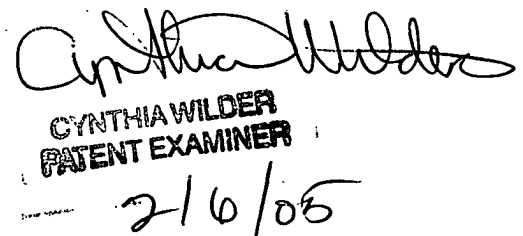 Cynthia Wilder
CYNTHIA WILDER
PATENT EXAMINER
2/6/05